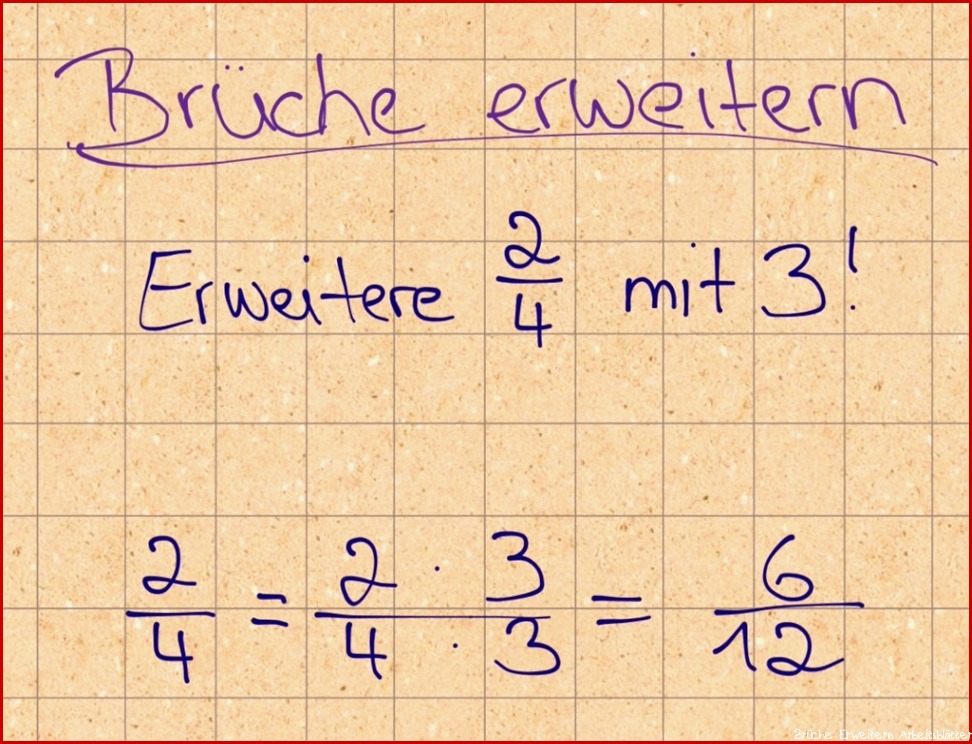 Brüche erweitern
Erweitere 2/4 mit 3!
2/4 = 2 · 3 / 4 · 3 = 6/12
Brüche Erweitern Arbeitsblätter